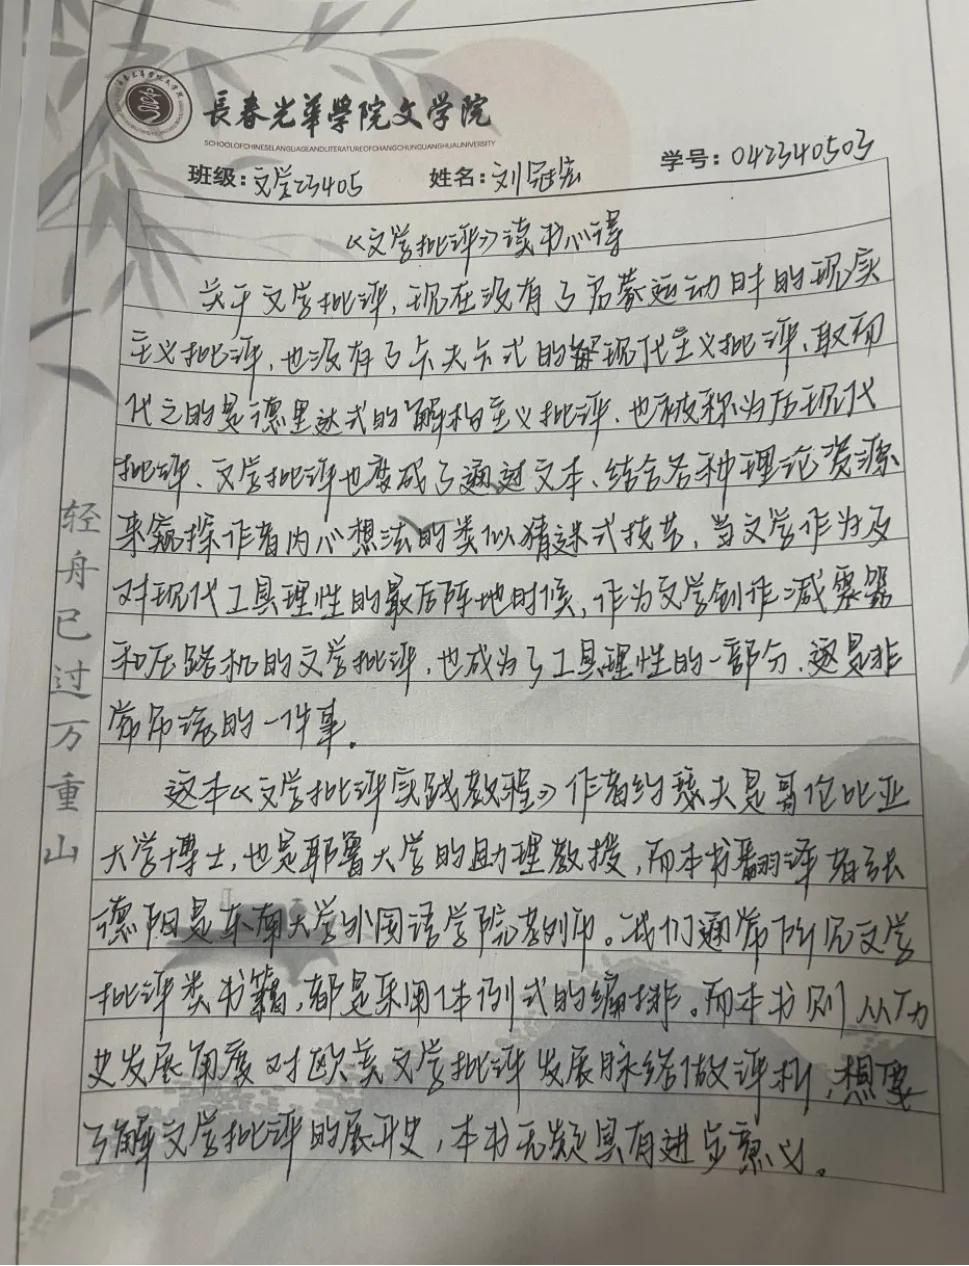 長春光華學院文學院
SCHOOLOFCHINESELANGUAGEANDLITERATUREOFCHANGCHUNGUANGHUAUNIVERSITY
班级:文学23405 姓名:刘冠宏 学号:042340503
《文学批评》读书心得
关于文学批评,现在没有了启蒙运动时的现实
主义批评,也没有了卡夫卡式的解现代主义批评、取而
代之的是德里达式的解构主义批评、也被称为后现代
批评、文学批评也变成了通过文本、结合各种理论资源
来窥探作者内心想法的类似猜谜式技艺,当文学作为反
对现代工具理性的最后阵地时候,作为文学创作减震器
和压路机的文学批评,也成为了工具理性的一部分、这是非
常吊诡的一件事.
这本《文学批评实践教程》作者约瑟夫是哥伦比亚
大学博士,也是耶鲁大学的助理教授,而本书翻译者张
德阳是东南大学外国语学院。我们通常所见文学
批评类书籍,都是采用体例式的编排。而本书则从历
史发展角度对欧美文学批评发展脉络做评析,想要
了解文学批评的展开史,本书无疑具有进步意义。
轻舟已过万重山